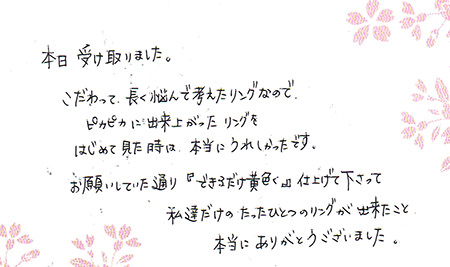 本日 受け取りました。
こだわって、長く悩んで考えたリングなので、
ピカピカに出来上がった リングを
はじめて見た時は、本当にうれしかったです。
お願いしていた通り『できるだけ黄色く』仕上げて下さって
私達だけの たったひとつのリングが出来たこと
本当に ありがとうございました。